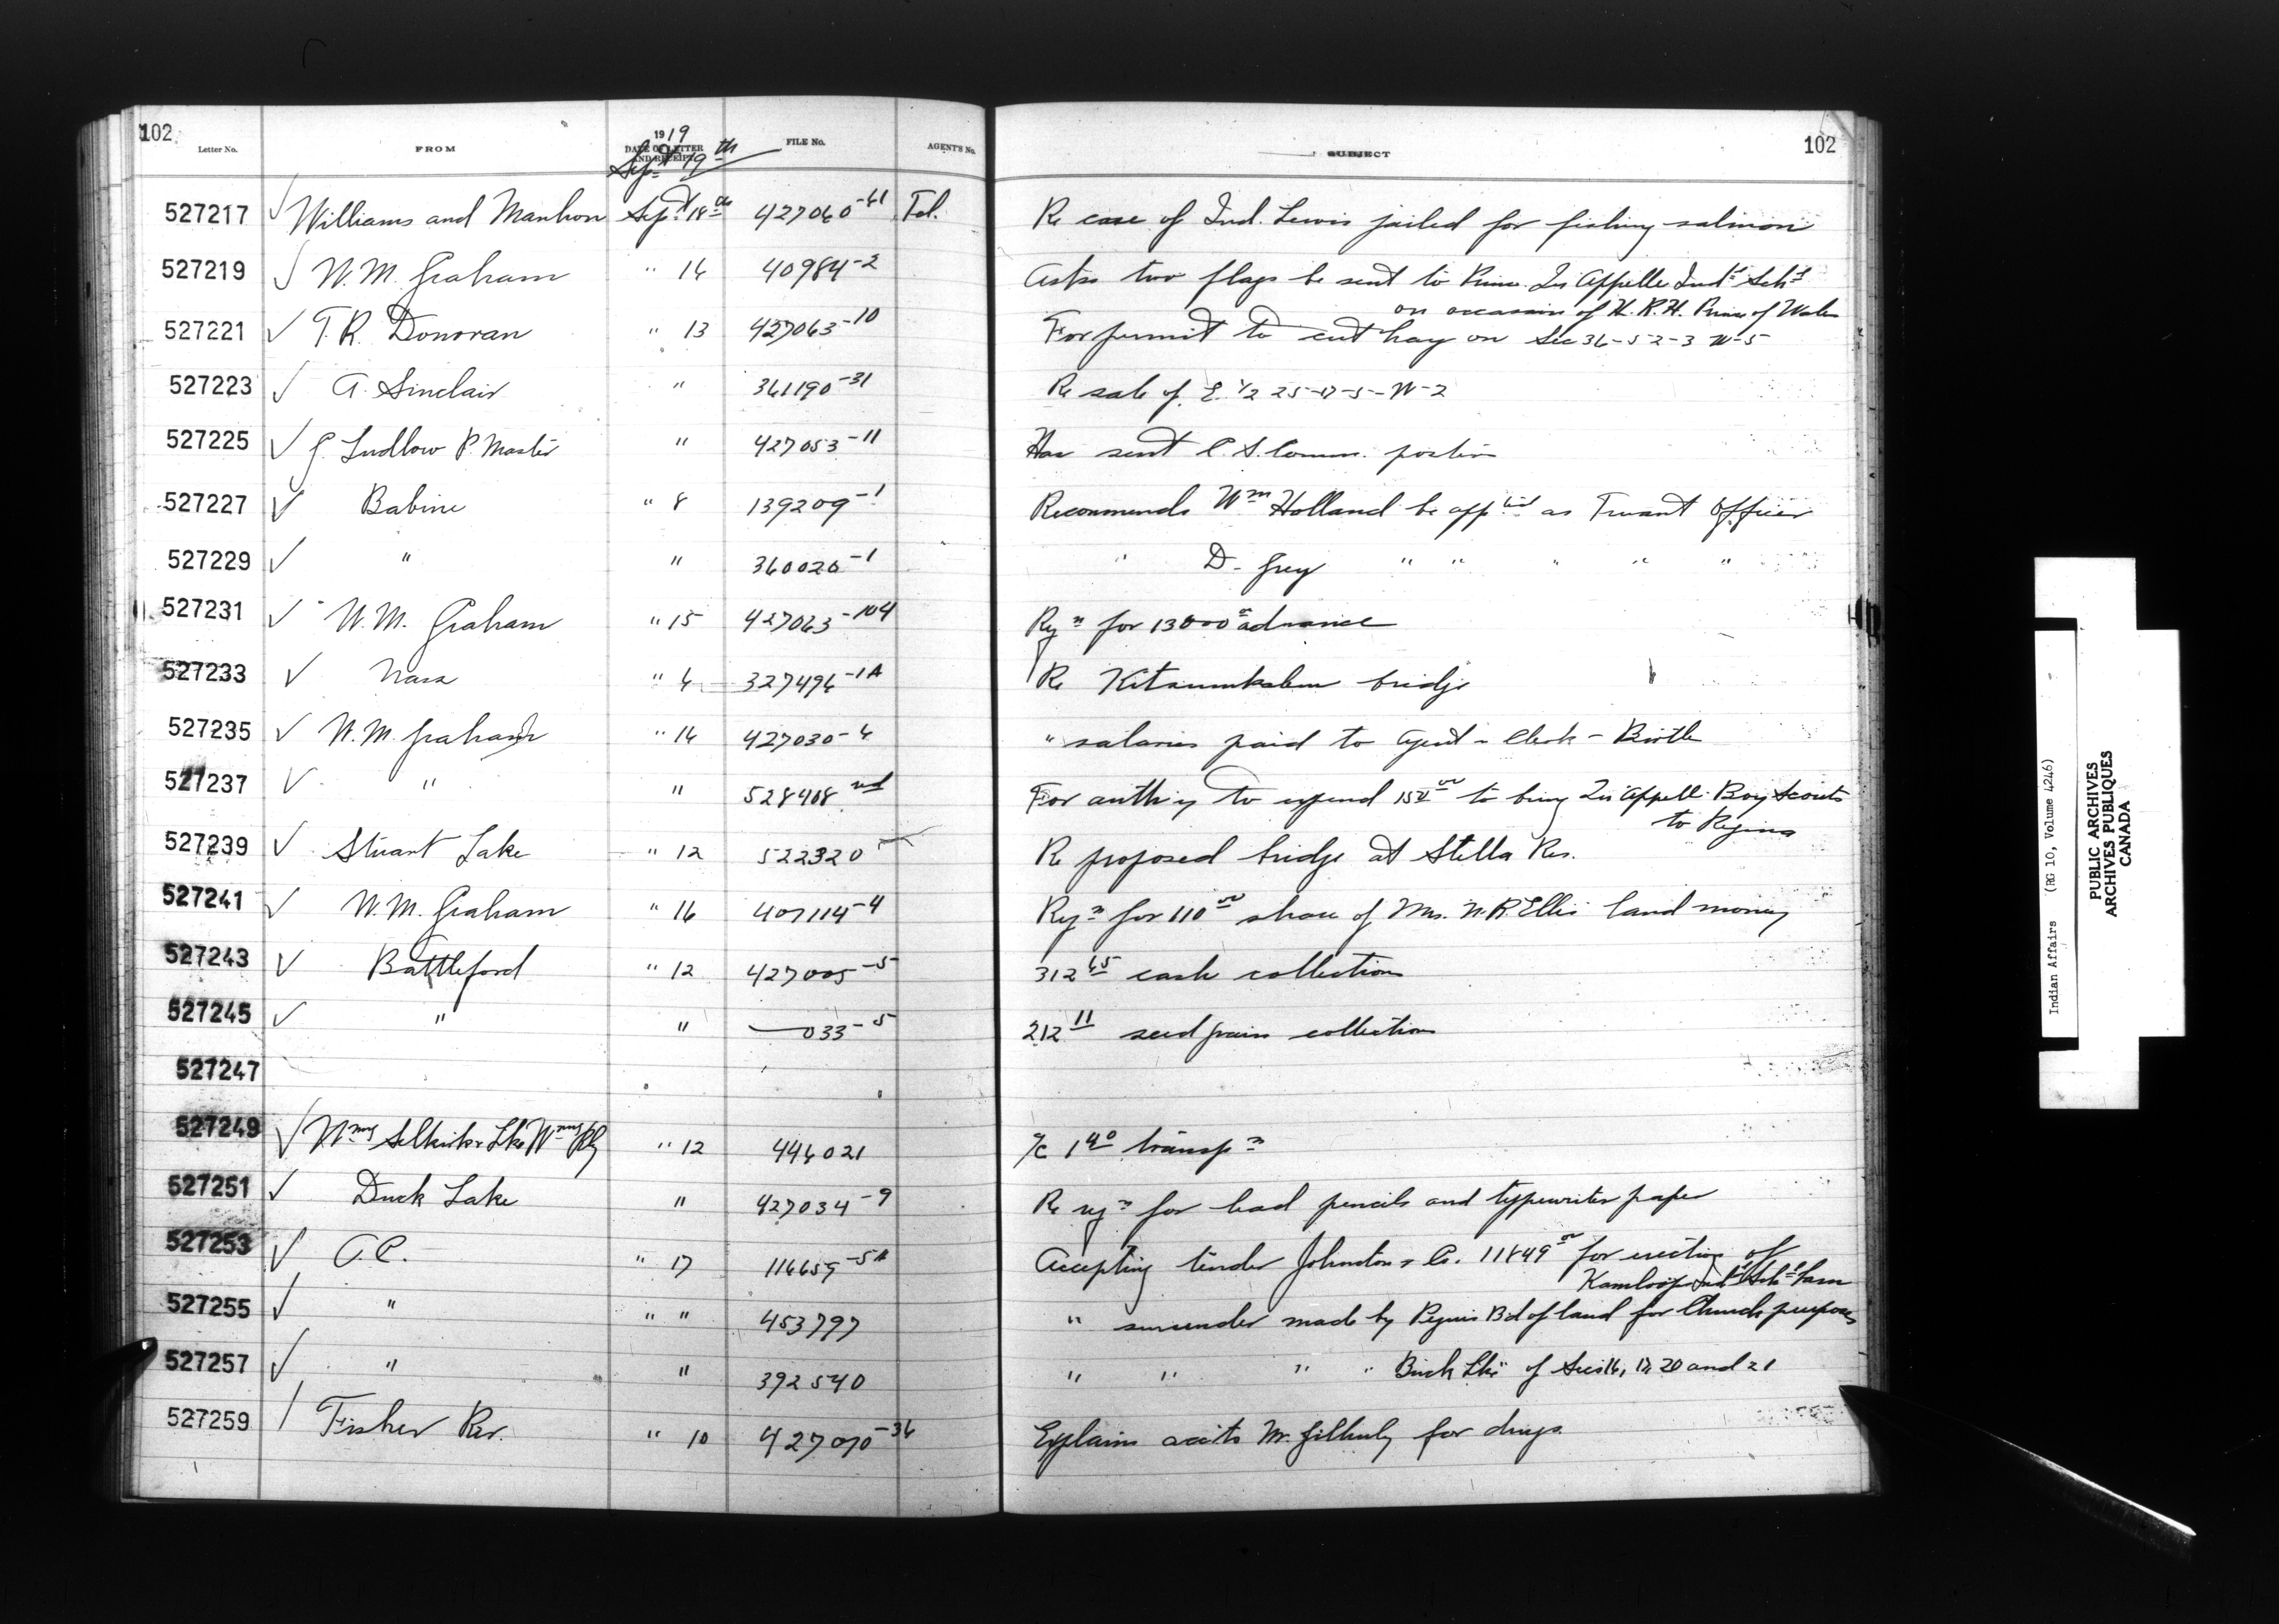 102
Letter No. FROM 1919 DATE OF LETTER AND RECEIPT FILE No. AGENT'S No. SUBJECT 102
Sept 19th
527217 ✓ Williams and Manson Sept 18th 427060-61 Tel. Re case of Ind. Lewis jailed for fishing salmon
527219 ✓ W.M. Graham " 16 40984-2 Asks two flags be sent to Princ. Qu Appelle Indl Schl
on occasion of H.R.H. Prince of Wales
527221 ✓ T.R. Donovan " 13 427063-10 For permit to cut hay on Sec 36-52-3 W-5
527223 ✓ A. Sinclair " 361190-31 Re sale of E. 1/2 25-17-5-W-2
527225 ✓ G. Ludlow P. Master " 427053-11 Has sent C.S. Comm. portion
527227 ✓ Babine " 8 139209-1 Recommends Wm Holland be apptd as Truant Officer
527229 ✓ " " 360020-1 " D. Grey " " " " "
527231 ✓ W.M. Graham " 15 427063-104 Rqn for 13000 00 advance
527233 ✓ Nass " 6 327496-1A Re Kitsumkalum bridge
527235 ✓ W.M. Graham " 16 427030-6 " salaries paid to Agent - Clerk - Birtle
527237 ✓ " " 528408 For authy to expend to bring Qu'Appelle Boy Scouts
to Regina
527239 ✓ Stuart Lake " 12 522320 Re proposed bridge at Stella Res.
527241 ✓ W.M. Graham " 16 407114-4 Rqn for 110 00 share of Mrs. N.R. Ellis land money
527243 ✓ Battleford " 12 427005-5 312 65 cash collection
527245 ✓ " " —033-5 212 11 seed grain collection
527247
527249 ✓ Wnng Selkirk & Lke Wnng Rly " 12 446021 a/c 1 40 transpn
527251 ✓ Duck Lake " 427034-9 Re rqn for lead pencils and typewriter paper
527253 ✓ O.C. " 17 116659-5A Accepting tender Johnston & Co. 11849 00 for erecting of
Kamloops Indl Schl barn
527255 ✓ " " " 453797 " surrender made by Peguis Bd of land for Church purposes
527257 ✓ " " 392540 " " " " Buck Lke " of Secs 16, 17, 20 and 21
527259 Fisher Riv. " 10 427070-36 Explains accts Mr. Gilhuly for drugs.
Indian Affairs (RG 10, Volume 4246)
PUBLIC ARCHIVES
ARCHIVES PUBLIQUES
CANADA